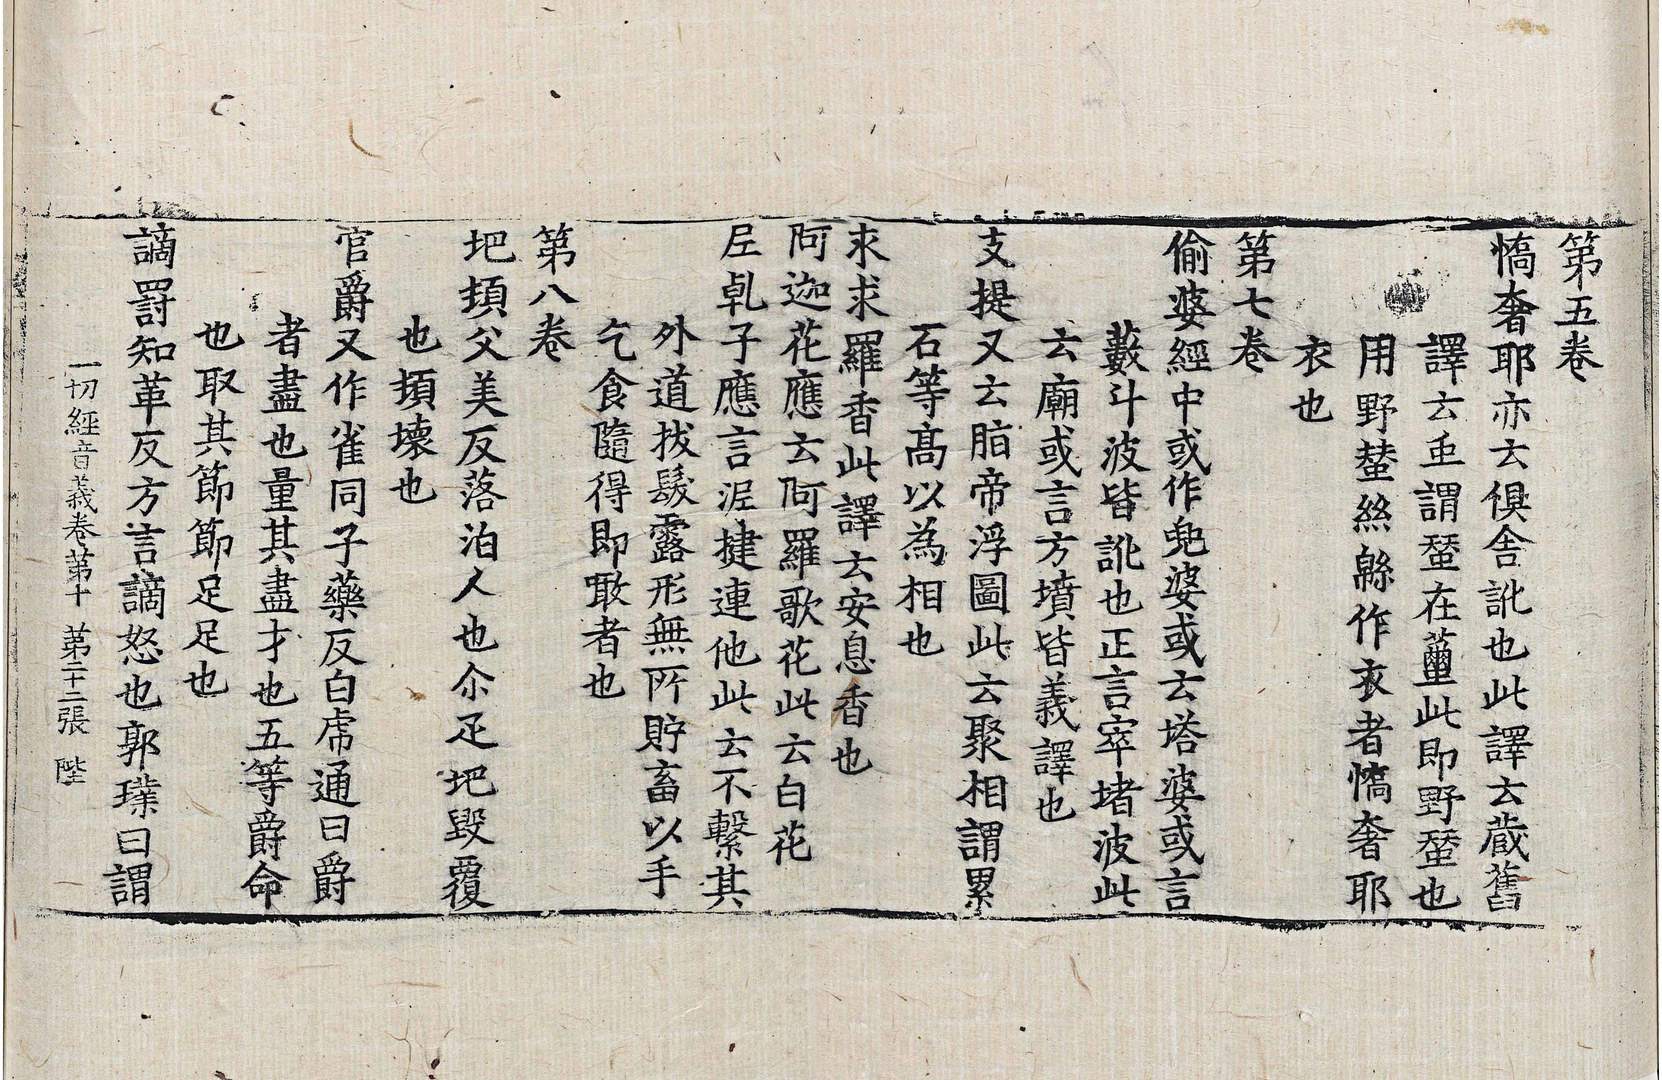 第五卷
憍奢耶亦云俱舍訛也此譯云蔵舊
譯云虫謂蝅在蠒此即野蝅也
用野蝅絲緜作衣者憍奢耶
衣也
第七卷
偷婆經中或作兜婆或云塔婆或言
藪斗波皆訛也正言窣堵波此
云廟或言方墳皆義譯也
支提又云脂帝浮圖此云聚相謂累
石等高以為相也
求求羅香此譯云安息香也
阿迦花應云阿羅歌花此云白花
尼乹子應言泥揵連他此云不繫其
外道拔髮露形無所貯畜以手
乞食隨得即噉者也
第八卷
圯頊父美反落泊人也尒疋圯毀覆
也頊壞也
官爵又作雀同子藥反白虎通曰爵
者盡也量其盡才也五等爵命
也取其節節足足也
謫罸知革反方言謫怒也郭璞曰謂
一切經音義卷第十 第二十二張 陛